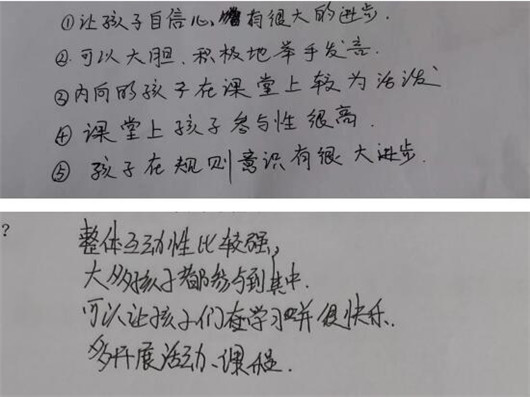 ①让孩子自信心,有很大的进步.
②可以大胆、积极地举手发言.
③内向的孩子在课堂上较为活泼
④课堂上孩子参与性很高.
⑤孩子在规则意识有很大进步.
?
整体互动性比较强,
大多孩子都参与到其中.
可以让孩子们在学习时很快乐.
多开展活动、课程.